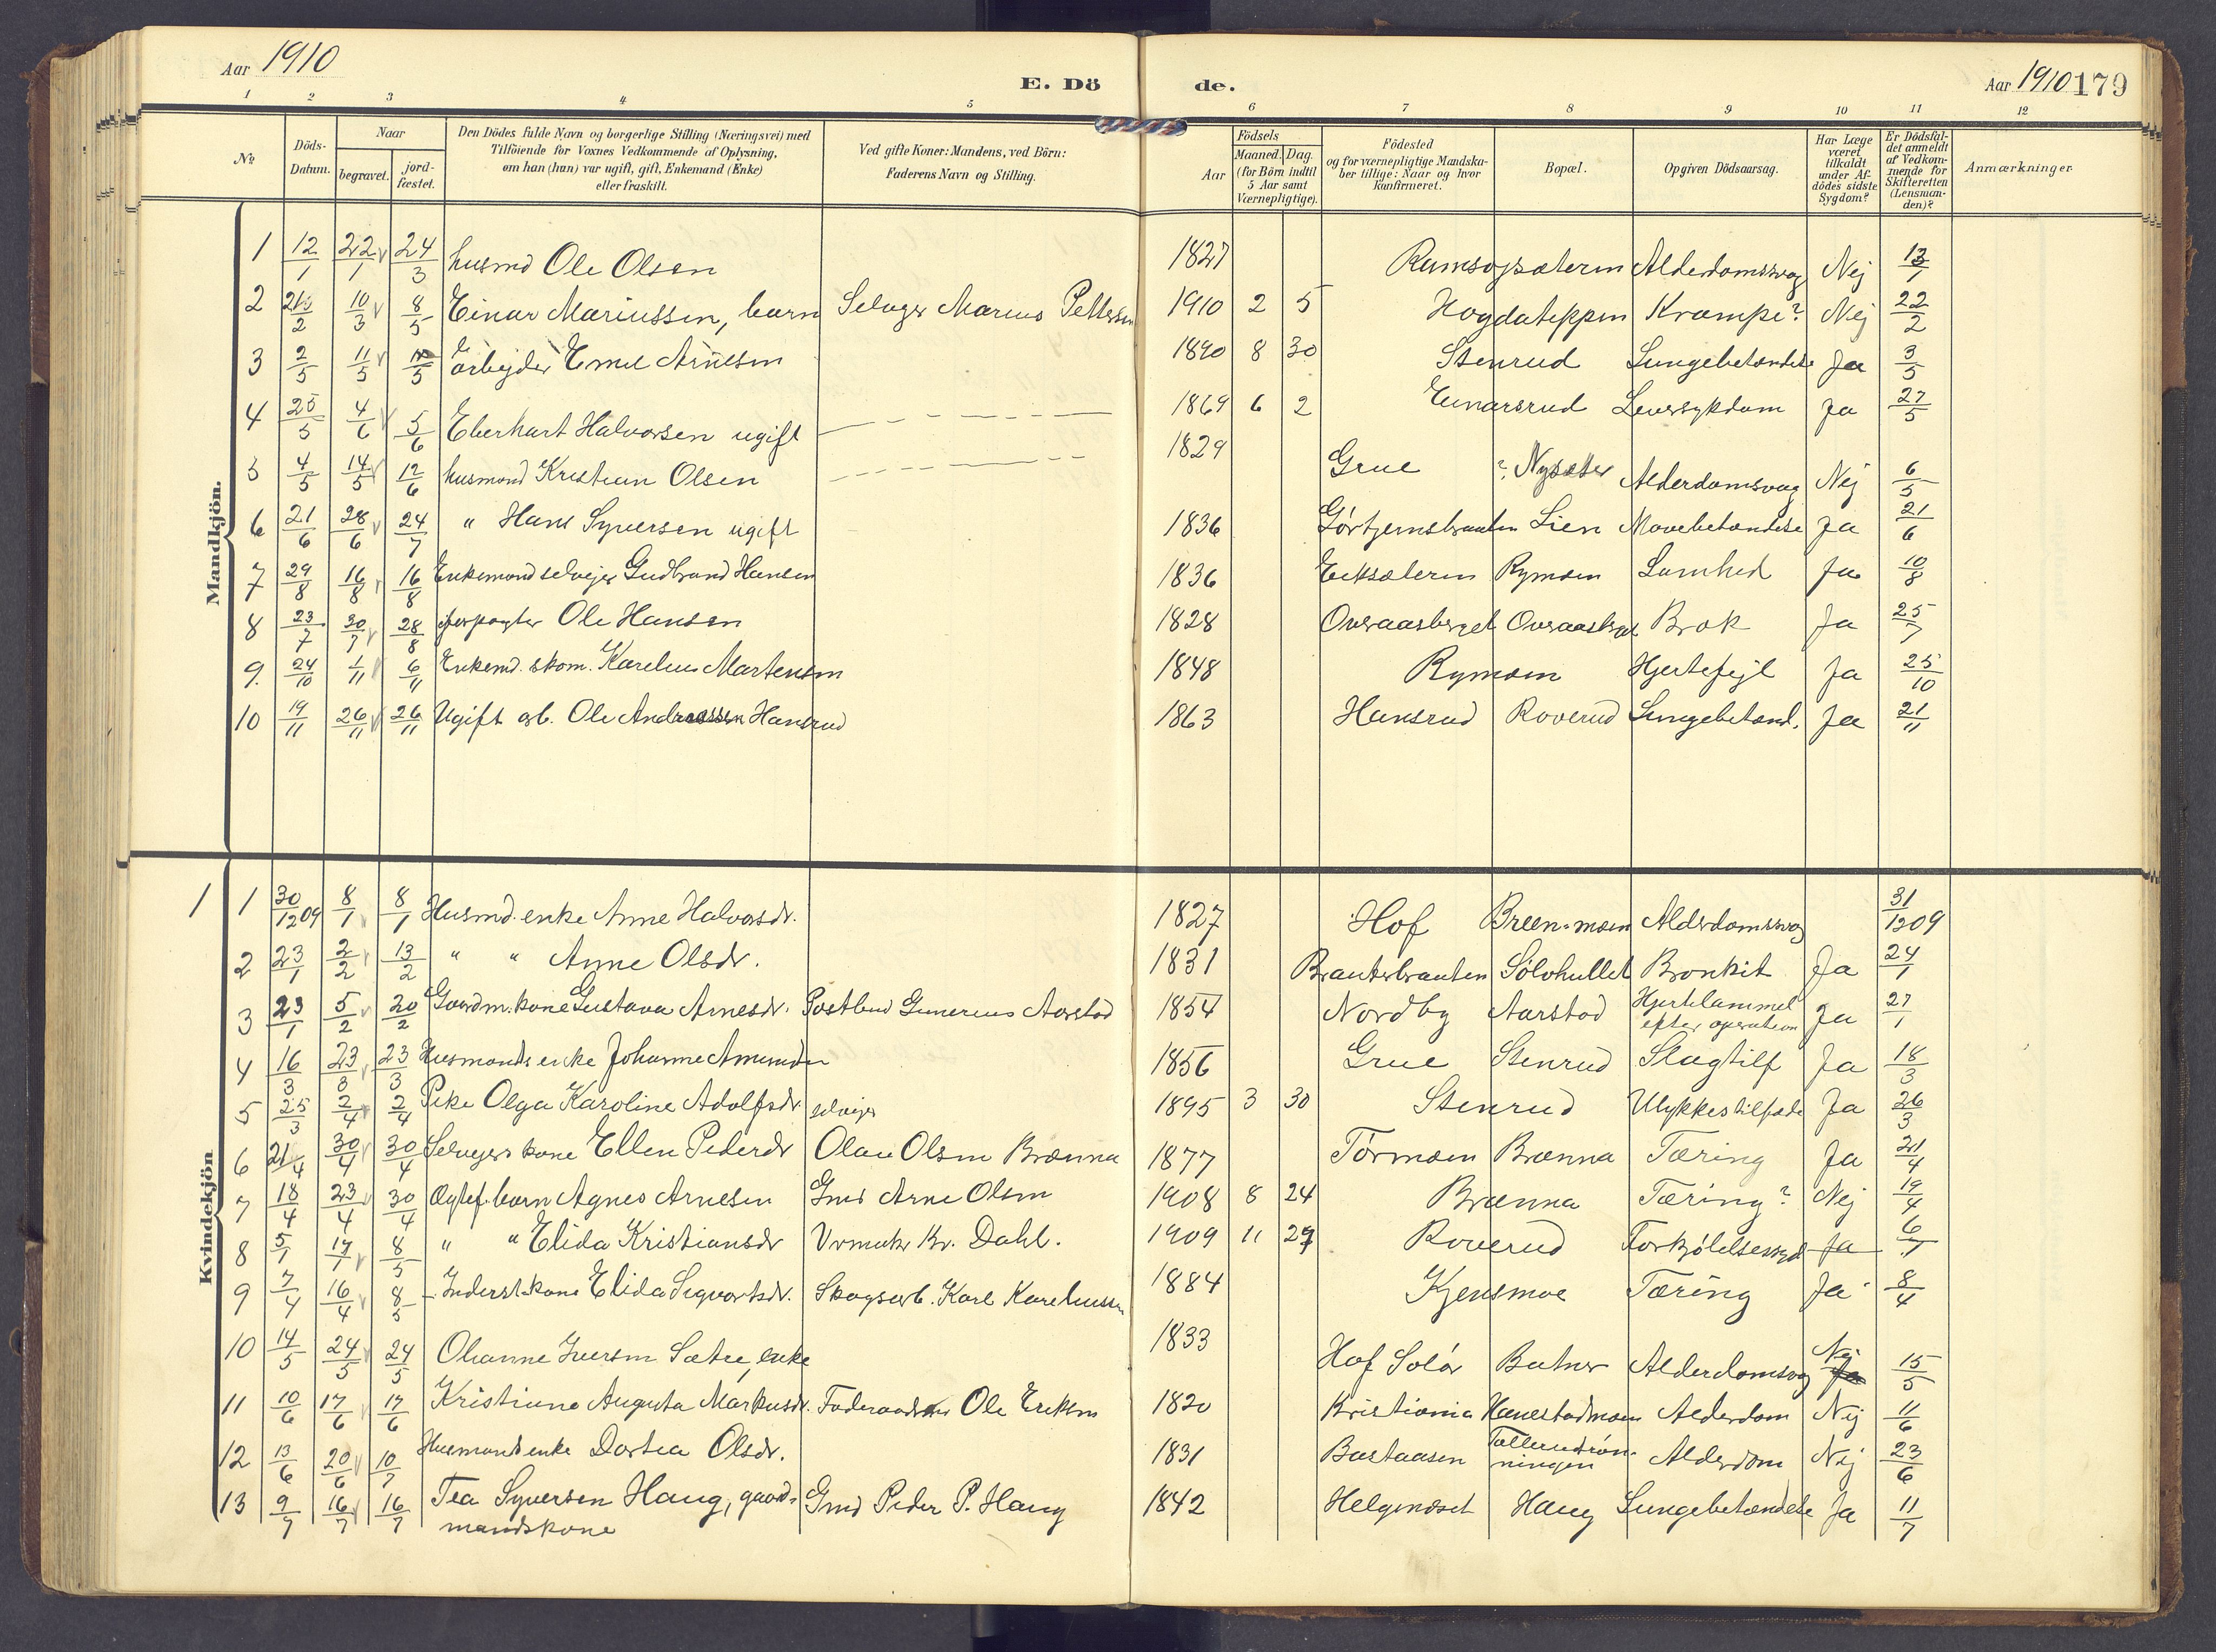 Aar 1910
E. Dö
de.
Aar 1910 179
1 2 3 4 5 6 7 8 9 10 11 12
№
Döds-Datum.
Naar
begravet.
jord-fæstet.
Den Dödes fulde Navn og borgerlige Stilling (Næringsvei) med
Tilföiende for Voxnes Vedkommende af Oplysning,
om han (hun) var ugift, gift, Enkemand (Enke)
eller fraskilt.
Ved gifte Koner: Mandens, ved Börn:
Faderens Navn og Stilling.
Födsels
Aar
Maaned. Dag.
(for Börn indtil
5 Aar samt
Værnepligtige).
Födested
og for værnepligtige Mandska-
ber tillige: Naar og hvor
konfirmeret.
Bopæl.
Opgiven Dödsaarsag.
Har Læge
været
tilkaldt
under Af-
dödes sidste
Sygdom?
Er Dödsfal-
det anmeldt
af Vedkom-
mende for
Skifteretten
(Lensman-
den)?
Anmærkninger.
Mandkjön.
1 12/1 22/1 24/3 husmd Ole Olsen 1827 Alderdomssvag Nej 13/1
2 21/2 10/3 8/5 Einar Mariussen, barn Selveger Marius Pettersen 1910 2 5 Hogdateppen Krampe? Nej 22/2
3 2/5 11/5 /5 arbejder Emil Arnesen 1890 8 30 Stenrud Lungebetændelse Ja 3/5
4 25/5 4/6 5/6 Eberhart Halvorsen ugift 1869 6 2 Einarsrud Leversykdom Ja 27/5
5 4/5 14/5 12/6 husmand Kristian Olsen 1829 Grue ? Nysæter Alderdomsvag Nej 6/5
6 21/6 28/6 24/7 " Hans Syversen ugift 1836 Lien Mavebetændelse Ja 21/6
7 29/8 16/8 16/8 Enkemand selvejer Gudbrand Hansen 1836 Eiksæteren Rymoen Lamhed Ja 10/8
8 23/7 30/7 28/8 forpagter Ole Hansen 1828 Overaasberget Overaasberget Brok Ja 25/7
9. 24/10 1/11 6/11 Enkemd. skom. Karelius Martensen 1848 Rymoen Hjertefejl Ja 25/10
10 19/11 26/11 26/11 Ugift arb. Ole Andreassen Hansrud 1863 Hansrud Roverud Lungebetænd. Ja 21/11
Kvindekjön
1 1 30/12 09 8/1 8/1 Husmd. enke Anne Halvorsdr. 1827 Hof Breen-moen Alderdomssvag 31/12 09
2 23/1 2/2 13/2 " " Anne Olsdr. 1831 Branterbraaten Sölvhullet Bronkit Ja 24/1
3 23/1 5/2 20/2 Gaardm. kone Gustava Arnesdr. Postbud Gunerius Aarstad 1854 Nordby Aarstad Hjertelammel efter operation Ja 27/1
4 16/3 23/3 23/3 Husmands enke Johanne Amundsdr 1856 Grue Stenrud Slagtilf Ja 18/3
5 25/3 2/4 2/4 Pike Olga Karoline Adolfsdr. selvejer 1895 3 30 Stenrud Ulykkestilfælde Ja 26/3
6 21/4 30/4 30/4 Selvejers kone Ellen Pedersdr Olau Olsen Brænna 1877 Törmoen Brænna Tæring Ja 21/4
7 18/4 23/4 30/4 Ægtef. barn Agnes Arnesen Gmd Arne Olsen 1908 8 24 Brænna Tæring? Nej 19/4
8 5/1 17/1 8/5 " " Elida Kristiansdr Urmaker Kr. Dahl. 1909 11 27 Roverud Forkjölelsessygd Ja 6/1
9 7/4 16/4 8/5 Inderst. kone Elida Sigvartsdr. Skogsarb. Karl Kareliussen 1884 Kjensmoe Tæring Ja 8/4
10 14/5 24/5 24/5 Oleanne Iversen Sætre, enke 1833 Hof Solör Butner Alderdomsvag Nej 15/5
11 10/6 17/6 17/6 Kristiane Augusta Markusdr. Föderaadsm Ole Eriksen 1820 Kristiania Hanestadmoen Alderdom Nej 11/6
12 13/6 20/6 10/7 Husmandsenke Dortea Olsdr. 1831 Bastaasen Tallerudrön-ningen Alderdom Nej 23/6
13 9/7 16/7 16/7 Tea Syversen Haug, gaard-mandskone Gmd Peder P. Haug 1842 Helgenæset Haug Lungebetændelse Ja 11/7